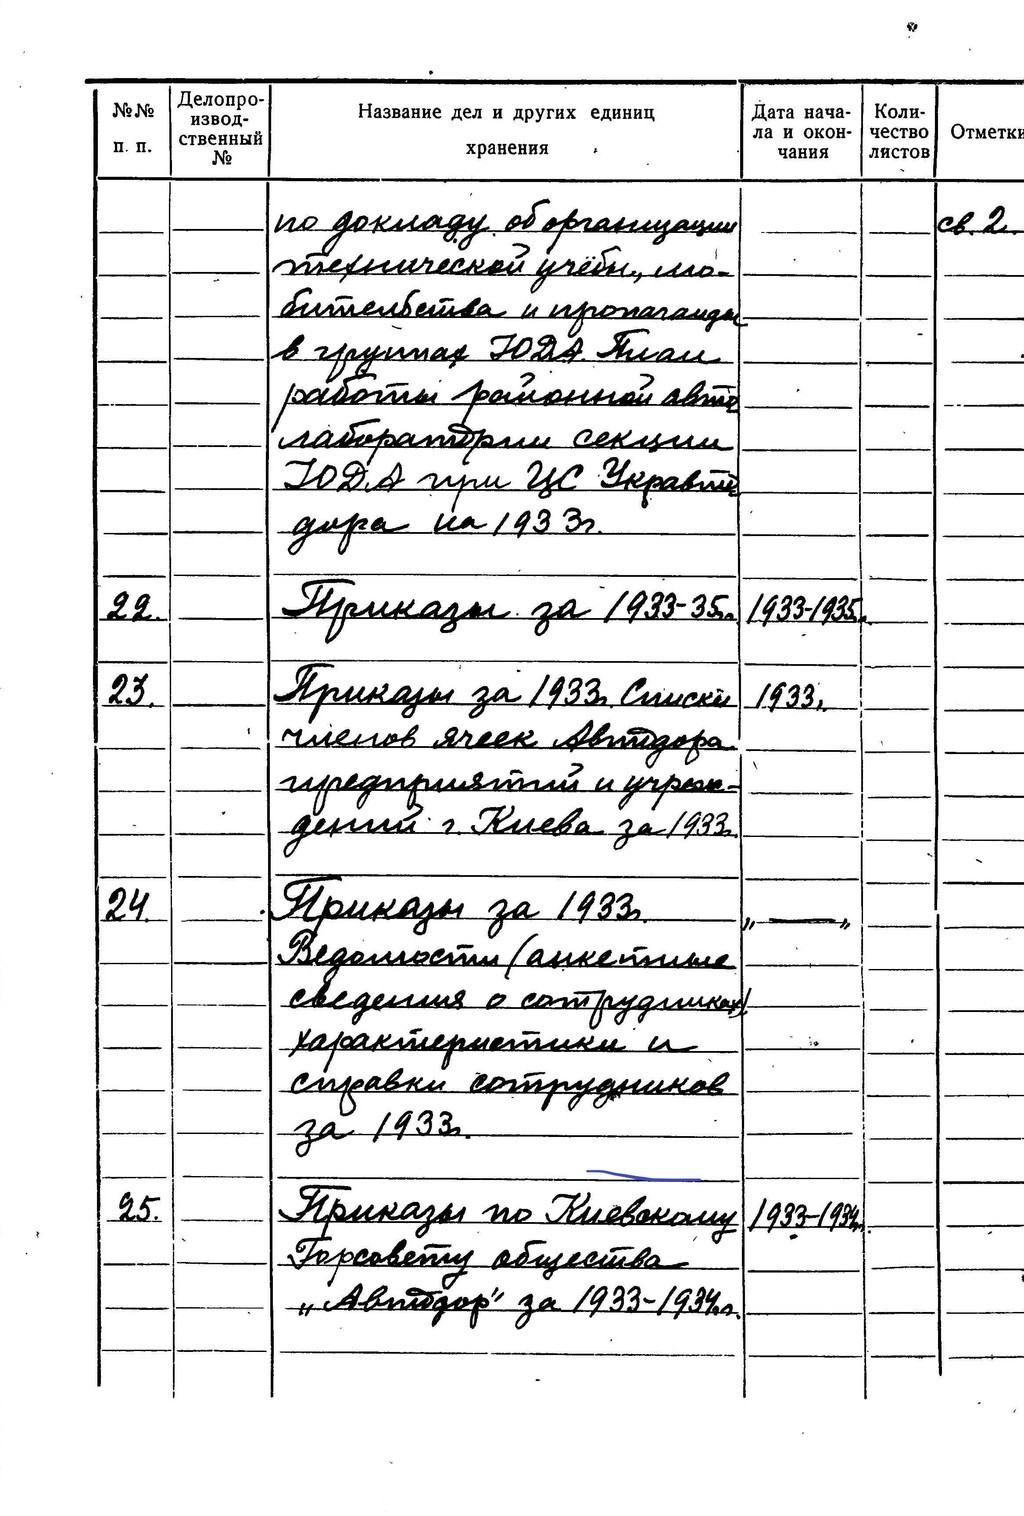 №№ п. п. Делопроизводственный № Название дел и других единиц хранения Дата начала и окончания Количество листов Отметки
по докладу об организации св. 2.
технической учёбы, лю-
бительства и пропаганды
в группах ЮДА План
работы районной авто
лаборатории секции
ЮДА при ЦС Укравто
дора на 1933г.
22. Приказы за 1933-35гг. 1933-1935гг.
23. Приказы за 1933г. Списки 1933г.
членов ячеек Автодора
предприятий и учреж-
дений г. Киева за 1933г.
24. Приказы за 1933г. „ — „
Ведомости (анкетные
сведения о сотрудниках)
характеристики и
справки сотрудников
за 1933г.
25. Приказы по Киевскому 1933-1934гг.
Горсовету общества
„Автодор" за 1933-1934г.г.